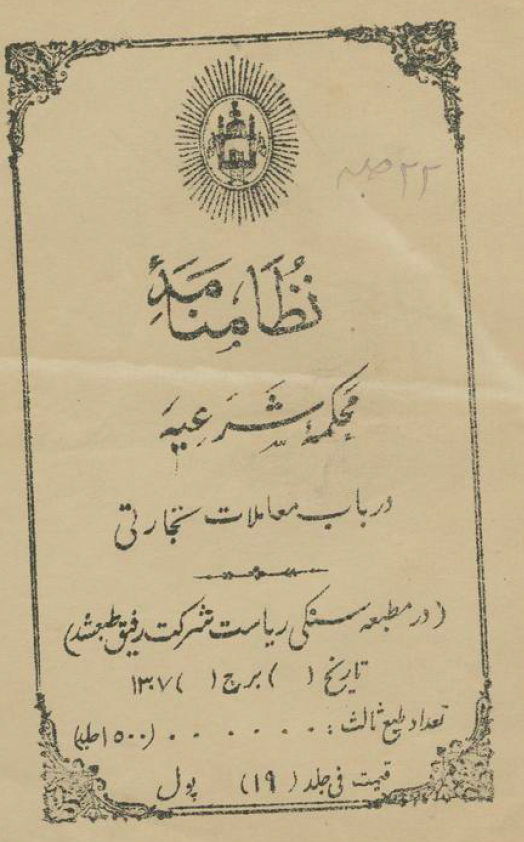 ۲۲ صفحه
نظامنامهٔ
محکمهٔ شرعیه
در باب معاملات تجارتی
(در مطبعه سنگی ریاست شرکت رفیق طبعشد)
تاریخ ( ) برج ( ) ۱۳۰۷
تعداد طبع ثالث : . . . . . . . (۱۵۰۰ جلد)
قیمت فی جلد (۱۹) پول